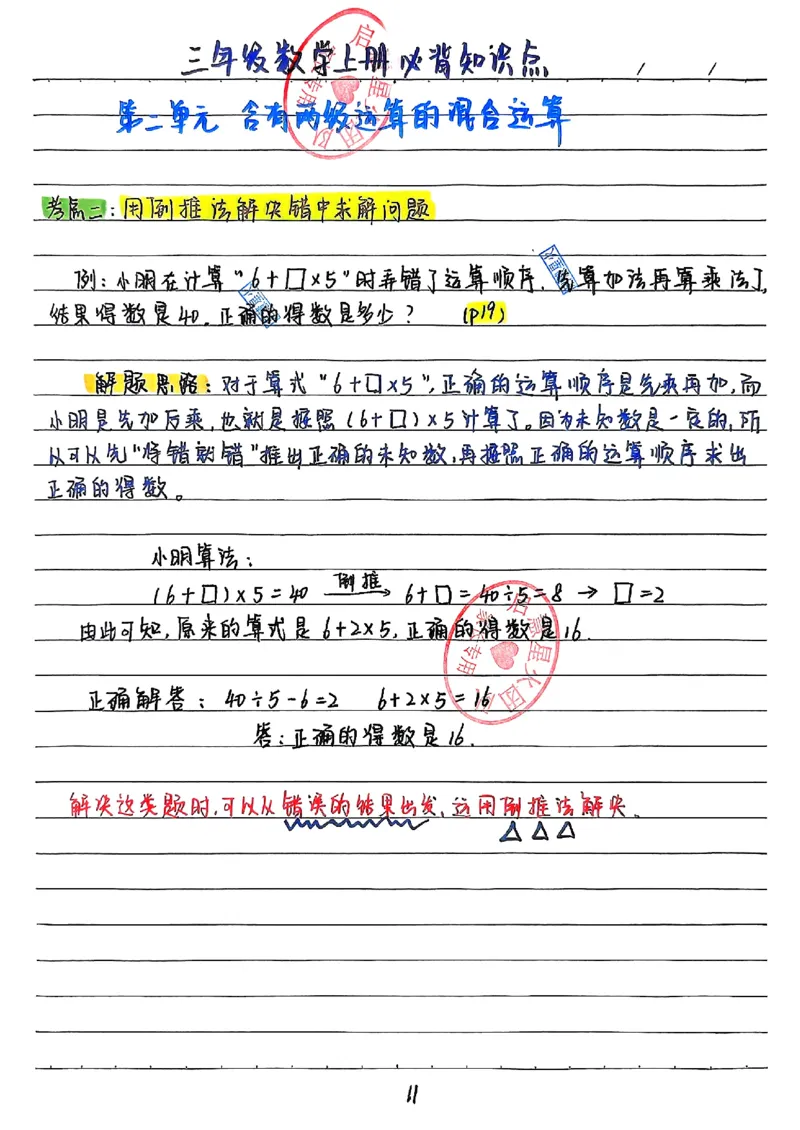 三年级数学上册必背知识点
第二单元 含有两级运算的混合运算
考点二：用倒推法解决错中求解问题
例：小明在计算“6+□×5”时弄错了运算顺序，先算加法再算乘法了，
结果得数是40。正确的得数是多少？ （p19）
解题思路：对于算式“6+□×5”，正确的运算顺序是先乘再加，而
小明是先加后乘，也就是按照（6+□）×5计算了。因为未知数是一定的，所
以可以先“将错就错”推出正确的未知数，再按照正确的运算顺序求出
正确的得数。
小明算法：
（6+□）×5=40 倒推→ 6+□=40÷5=8 → □=2
由此可知，原来的算式是6+2×5，正确的得数是16.
正确解答：40÷5-6=2 6+2×5=16
答：正确的得数是16.
解决这类题时，可以从错误的结果出发，运用倒推法解决。
11